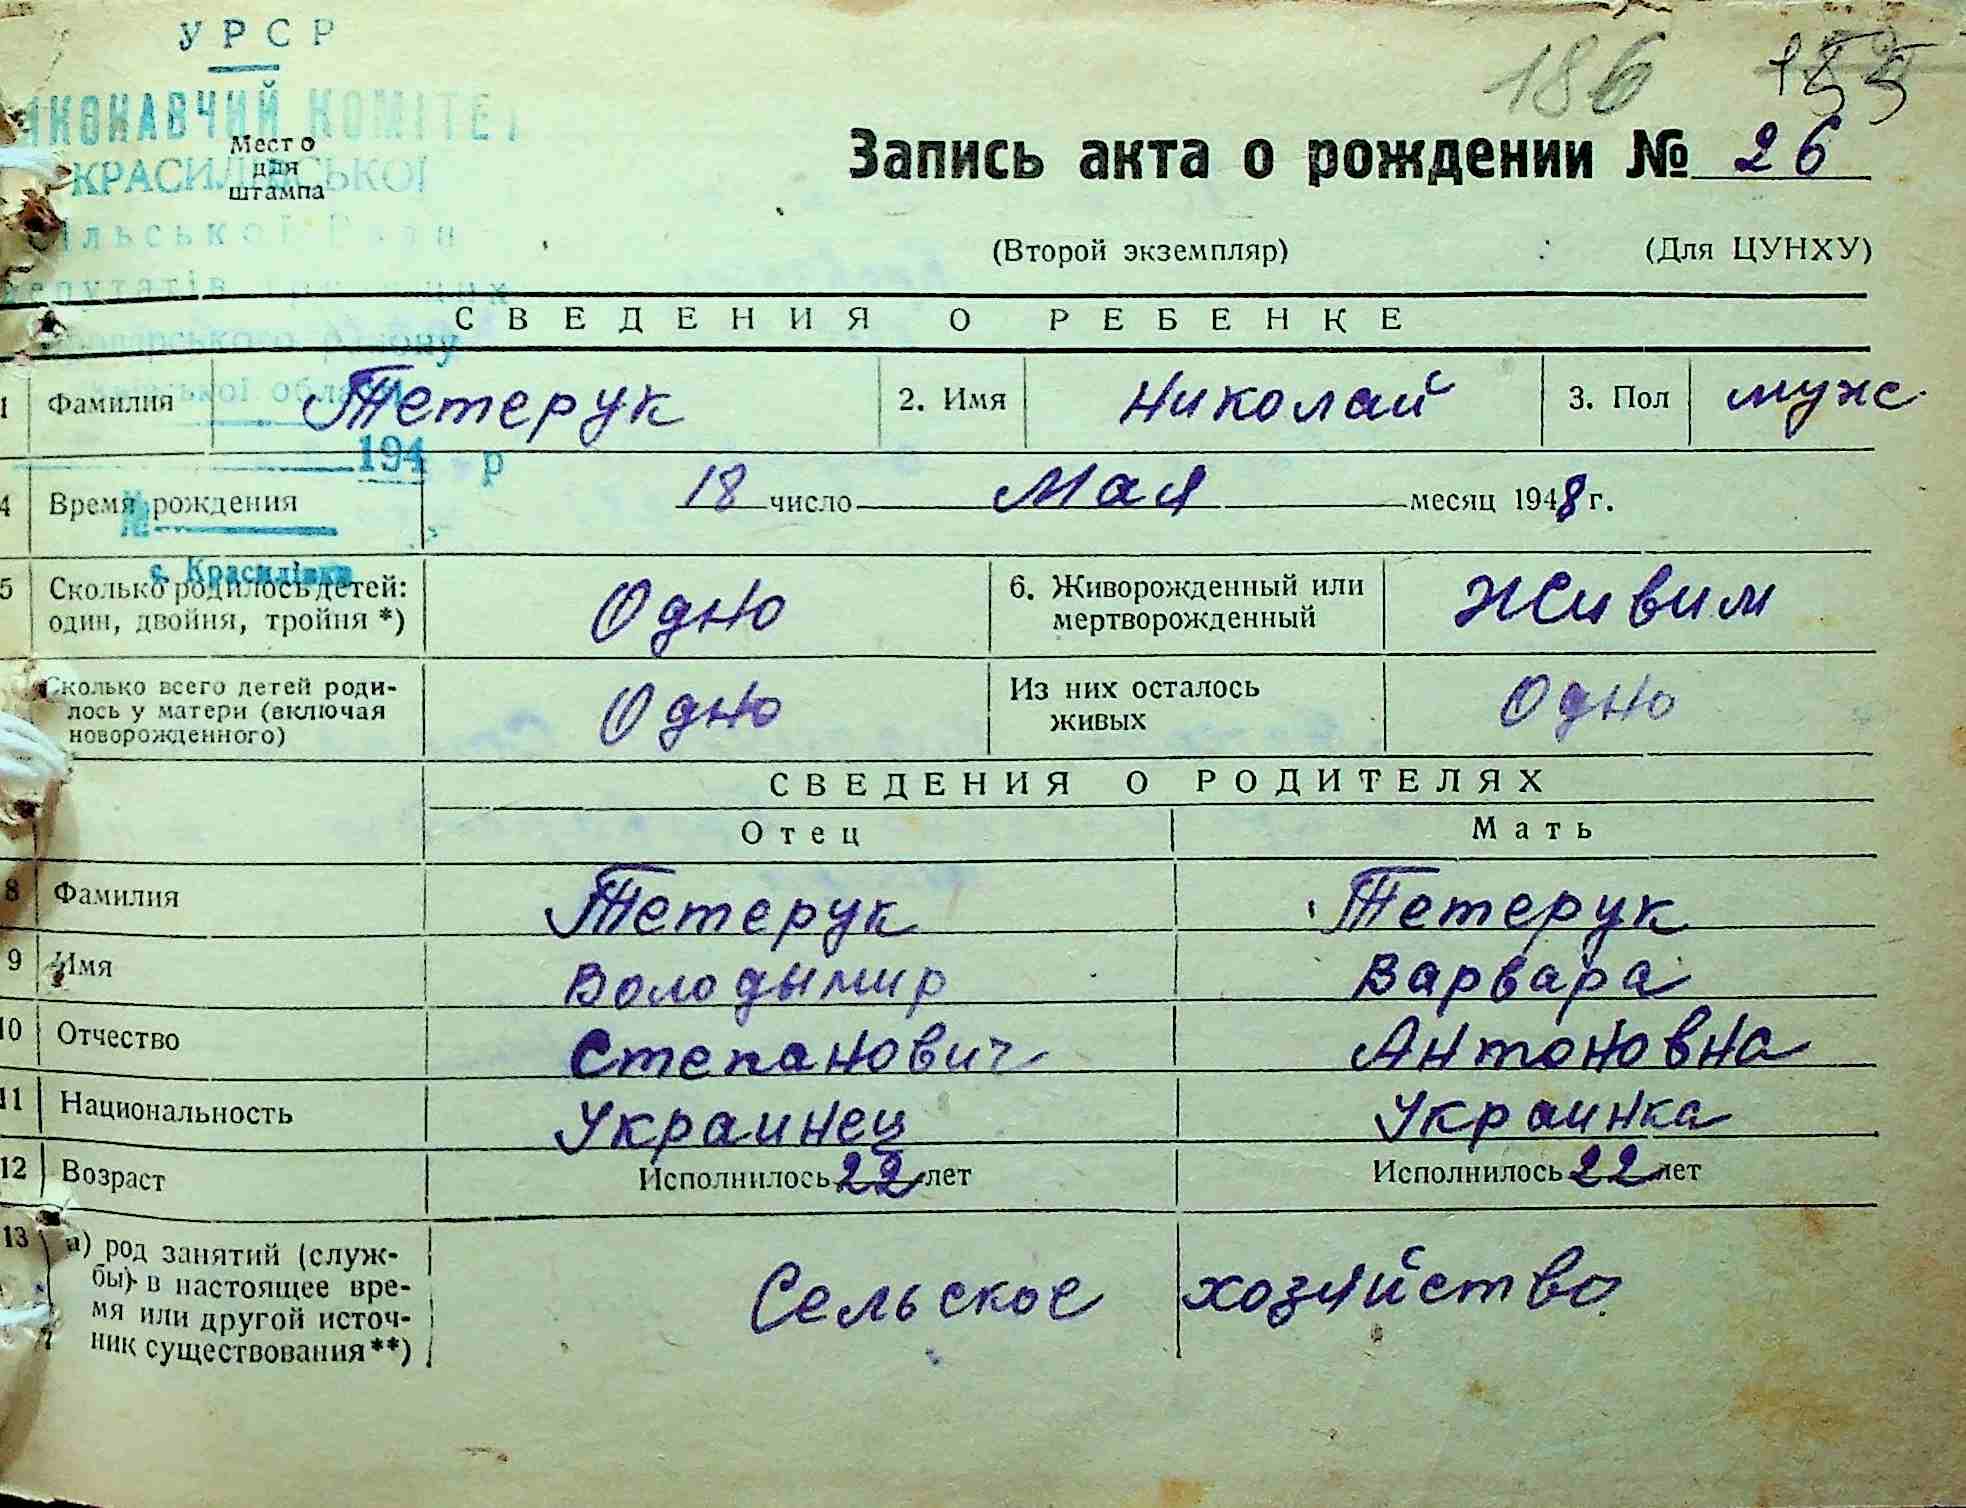 УРСР
КОМІТЕТ
Место
для
штампа
КРАСИЛІВСЬКОЇ
186 155
Запись акта о рождении № 26
(Второй экземпляр) (Для ЦУНХУ)
СВЕДЕНИЯ О РЕБЕНКЕ
1 Фамилия Тетерук 2. Имя Николай 3. Пол муж.
194 р
4 Время рождения 18 число Мая месяц 1948 г.
№
с. Красилівка
5 Сколько родилось детей: один, двойня, тройня *) Одно 6. Живорожденный или мертворожденный Живим
Сколько всего детей роди-
лось у матери (включая
новорожденного) Одно Из них осталось живых Одно
СВЕДЕНИЯ О РОДИТЕЛЯХ
Отец Мать
8 Фамилия Тетерук Тетерук
9 Имя Володымир Варвара
10 Отчество Степанович Антоновна
11 Национальность Украинец Украинка
12 Возраст Исполнилось 22 лет Исполнилось 22 лет
13 а) род занятий (служ-
бы) в настоящее вре-
мя или другой источ-
ник существования**) Сельское хозяйство